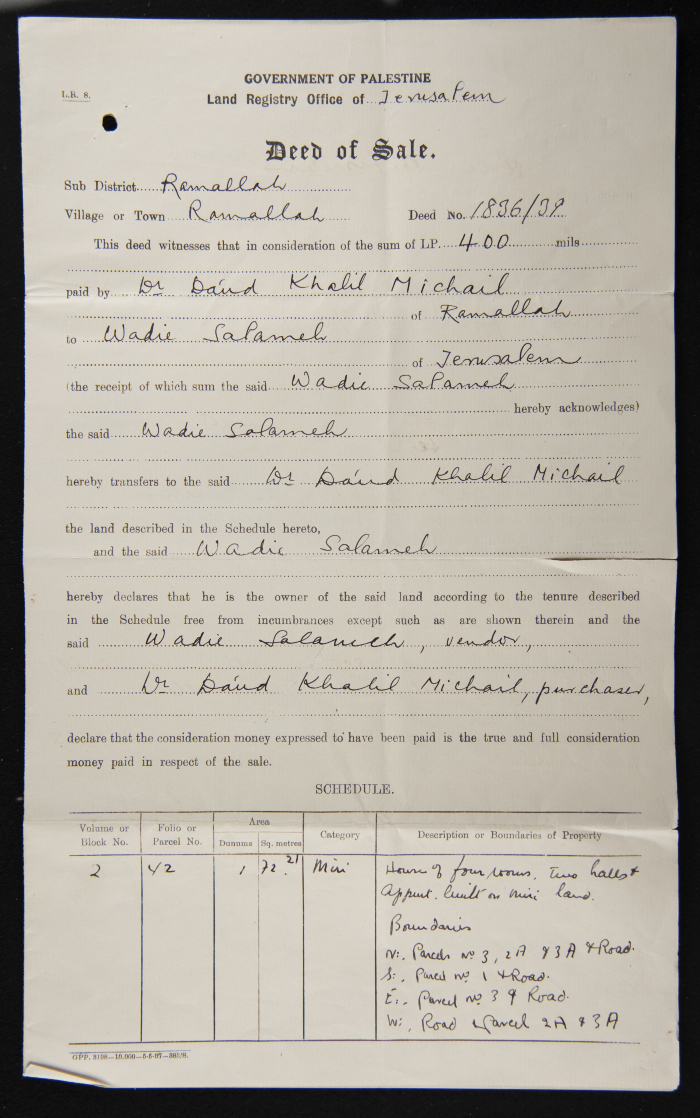 GOVERNMENT OF PALESTINE
L.R. 8.
Land Registry Office of Jerusalem
Deed of Sale.
Sub District Ramallah
Village or Town Ramallah Deed No. 1836/39
This deed witnesses that in consideration of the sum of LP. 400 mils
paid by Dr Dáud Khalil Michail
of Ramallah
to Wadie Salameh
of Jerusalem
(the receipt of which sum the said Wadie Salameh
hereby acknowledges)
the said Wadie Salameh
hereby transfers to the said Dr Dáud Khalil Michail
the land described in the Schedule hereto,
and the said Wadie Salameh
hereby declares that he is the owner of the said land according to the tenure described
in the Schedule free from incumbrances except such as are shown therein and the
said Wadie Salameh, vendor,
and Dr Dáud Khalil Michail, purchaser,
declare that the consideration money expressed to have been paid is the true and full consideration
money paid in respect of the sale.
SCHEDULE.
Volume or Block No. Folio or Parcel No. Area Dunums Sq. metres Category Description or Boundaries of Property
2 42 1 72.21 Miri House of four rooms, two halls &
Appurt. built on miri land.
Boundaries
N:. Parcels No 3, 2A & 3A & Road.
S:. Parcel No 1 & Road.
E:. Parcel No 3 & Road.
W:. Road & Parcel 2A & 3A
GPP. 3108—10,000—5-6-37—385/S.